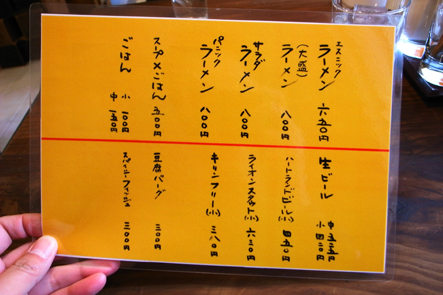 エスニック
ラーメン 六五〇円
(大盛)
ラーメン 八〇〇円
サラダ
ラーメン 八〇〇円
パニック
ラーメン 八〇〇円
スープ×ごはん 五〇〇円
ごはん 小 一〇〇円
中 一五〇円
生ビール 中 五五〇円
小 四二〇円
ハートランドビール(小) 四五〇円
ライオンスタウト(小) 六三〇円
キリンフリー(小) 三八〇円
豆腐バーグ 三〇〇円
スパイシーフィッシュ 三〇〇円